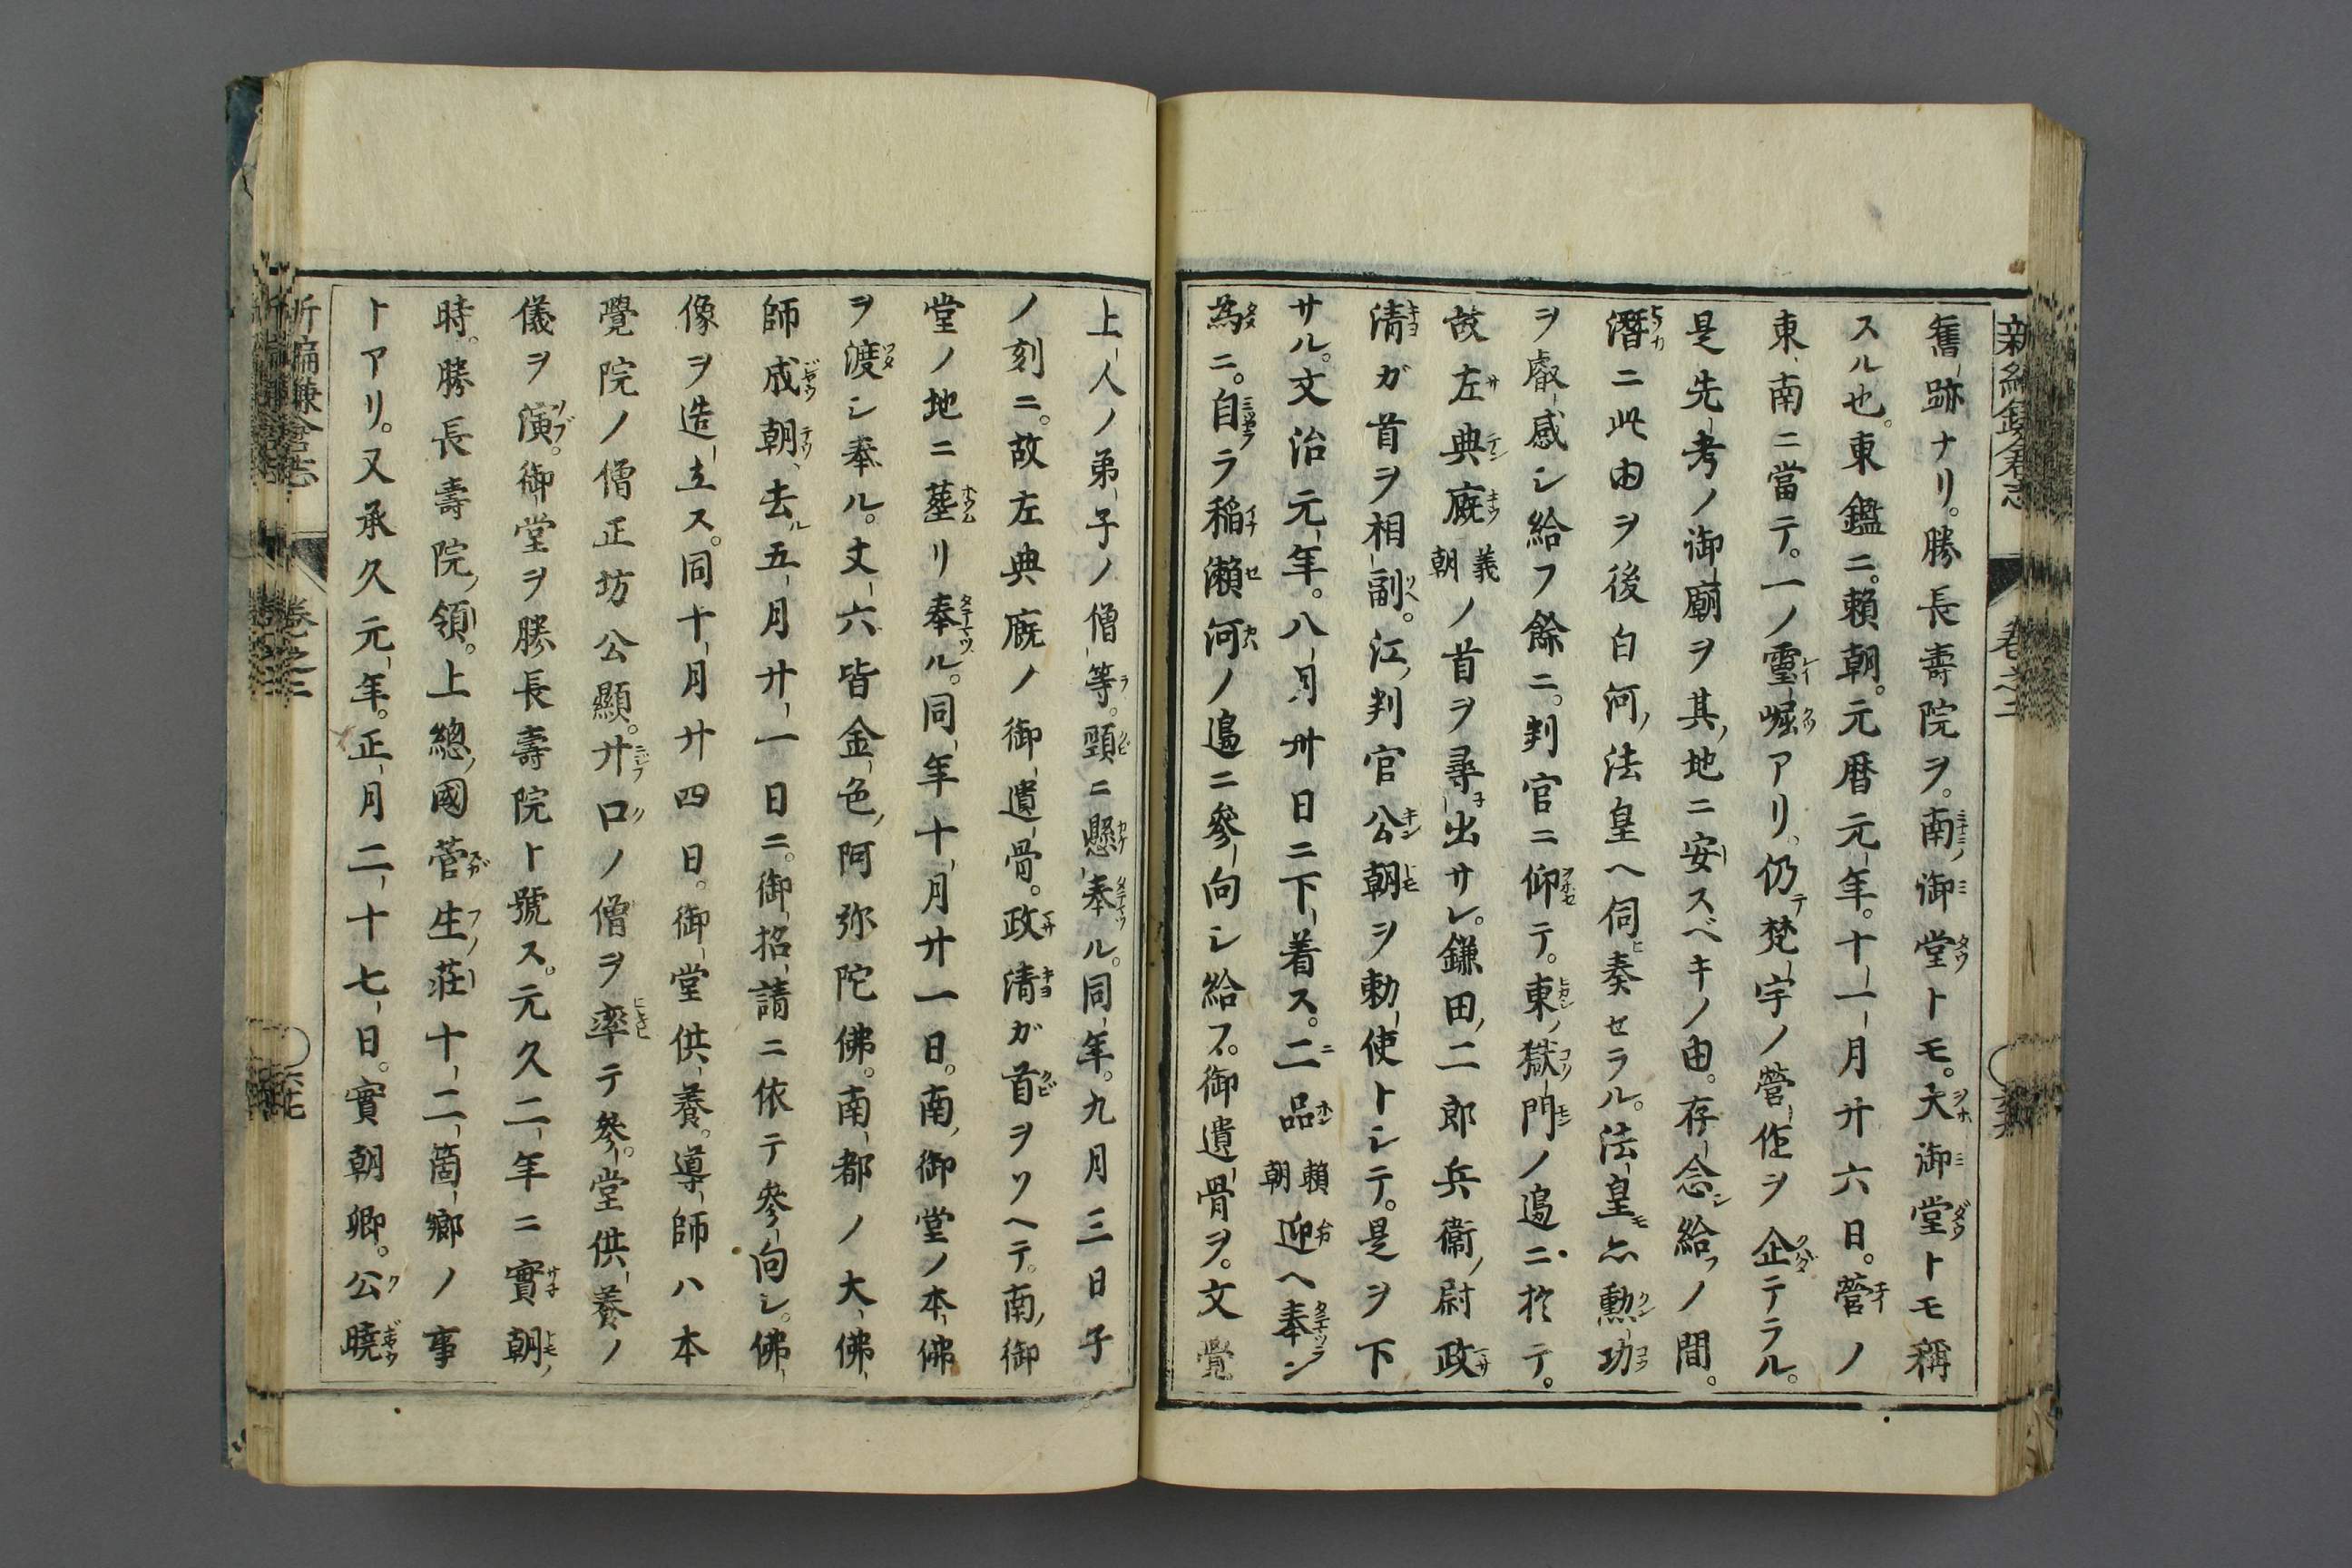 舊跡ナリ。勝長壽院ヲ。南御堂トモ。大御堂トモ稱
スル也。東鑑ニ。賴朝。元曆元年。十一月廿六日。營ノ
東南ニ當テ。一ノ靈崛アリ。仍テ梵宇ノ營作ヲ企テラル。
是先考ノ御廟ヲ其ノ地ニ安スベキノ由。存念シ給フノ間。
潛ニ此由ヲ後白河ノ法皇ヘ伺奏セラル。法皇モ亦勲功
ヲ叡感シ給フ餘ニ。判官ニ仰テ。東ノ獄門ノ邉ニ於テ。
故左典廐義朝ノ首ヲ尋出サレ。鎌田ノ二郎兵衞ノ尉政
清ガ首ヲ相副。江ノ判官公朝ヲ勅使トシテ。是ヲ下
サル。文治元年。八月卅日ニ下着ス。二品賴朝迎ヘ奉ン
爲ニ。自ラ稲瀬河ノ邉ニ參向シ給フ。御遺骨ヲ。文覺
上人ノ弟子ノ僧等。頸ニ懸奉ル。同年。九月三日子
ノ刻ニ。故左典廐ノ御遺骨。政清ガ首ヲソヘテ。南ノ御
堂ノ地ニ葬リ奉ル。同年十月廿一日。南ノ御堂ノ本佛
ヲ渡シ奉ル。丈六皆金色ノ阿弥陀佛。南都ノ大佛
師成朝、去ル五月廿一日ニ。御招請ニ依テ參向シ。佛
像ヲ造立ス。同十月廿四日。御堂供養。導師ハ本
覺院ノ僧正坊公顯。廿口ノ僧ヲ率テ參。堂供養ノ
儀ヲ演。御堂ヲ勝長壽院ト號ス。元久二年ニ實朝ノ
時。勝長壽院ノ領。上總ノ國菅生ノ莊十二箇郷ノ事
トアリ。又承久元年。正月二十七日。實朝卿。公曉
新編鎌倉志
卷之二